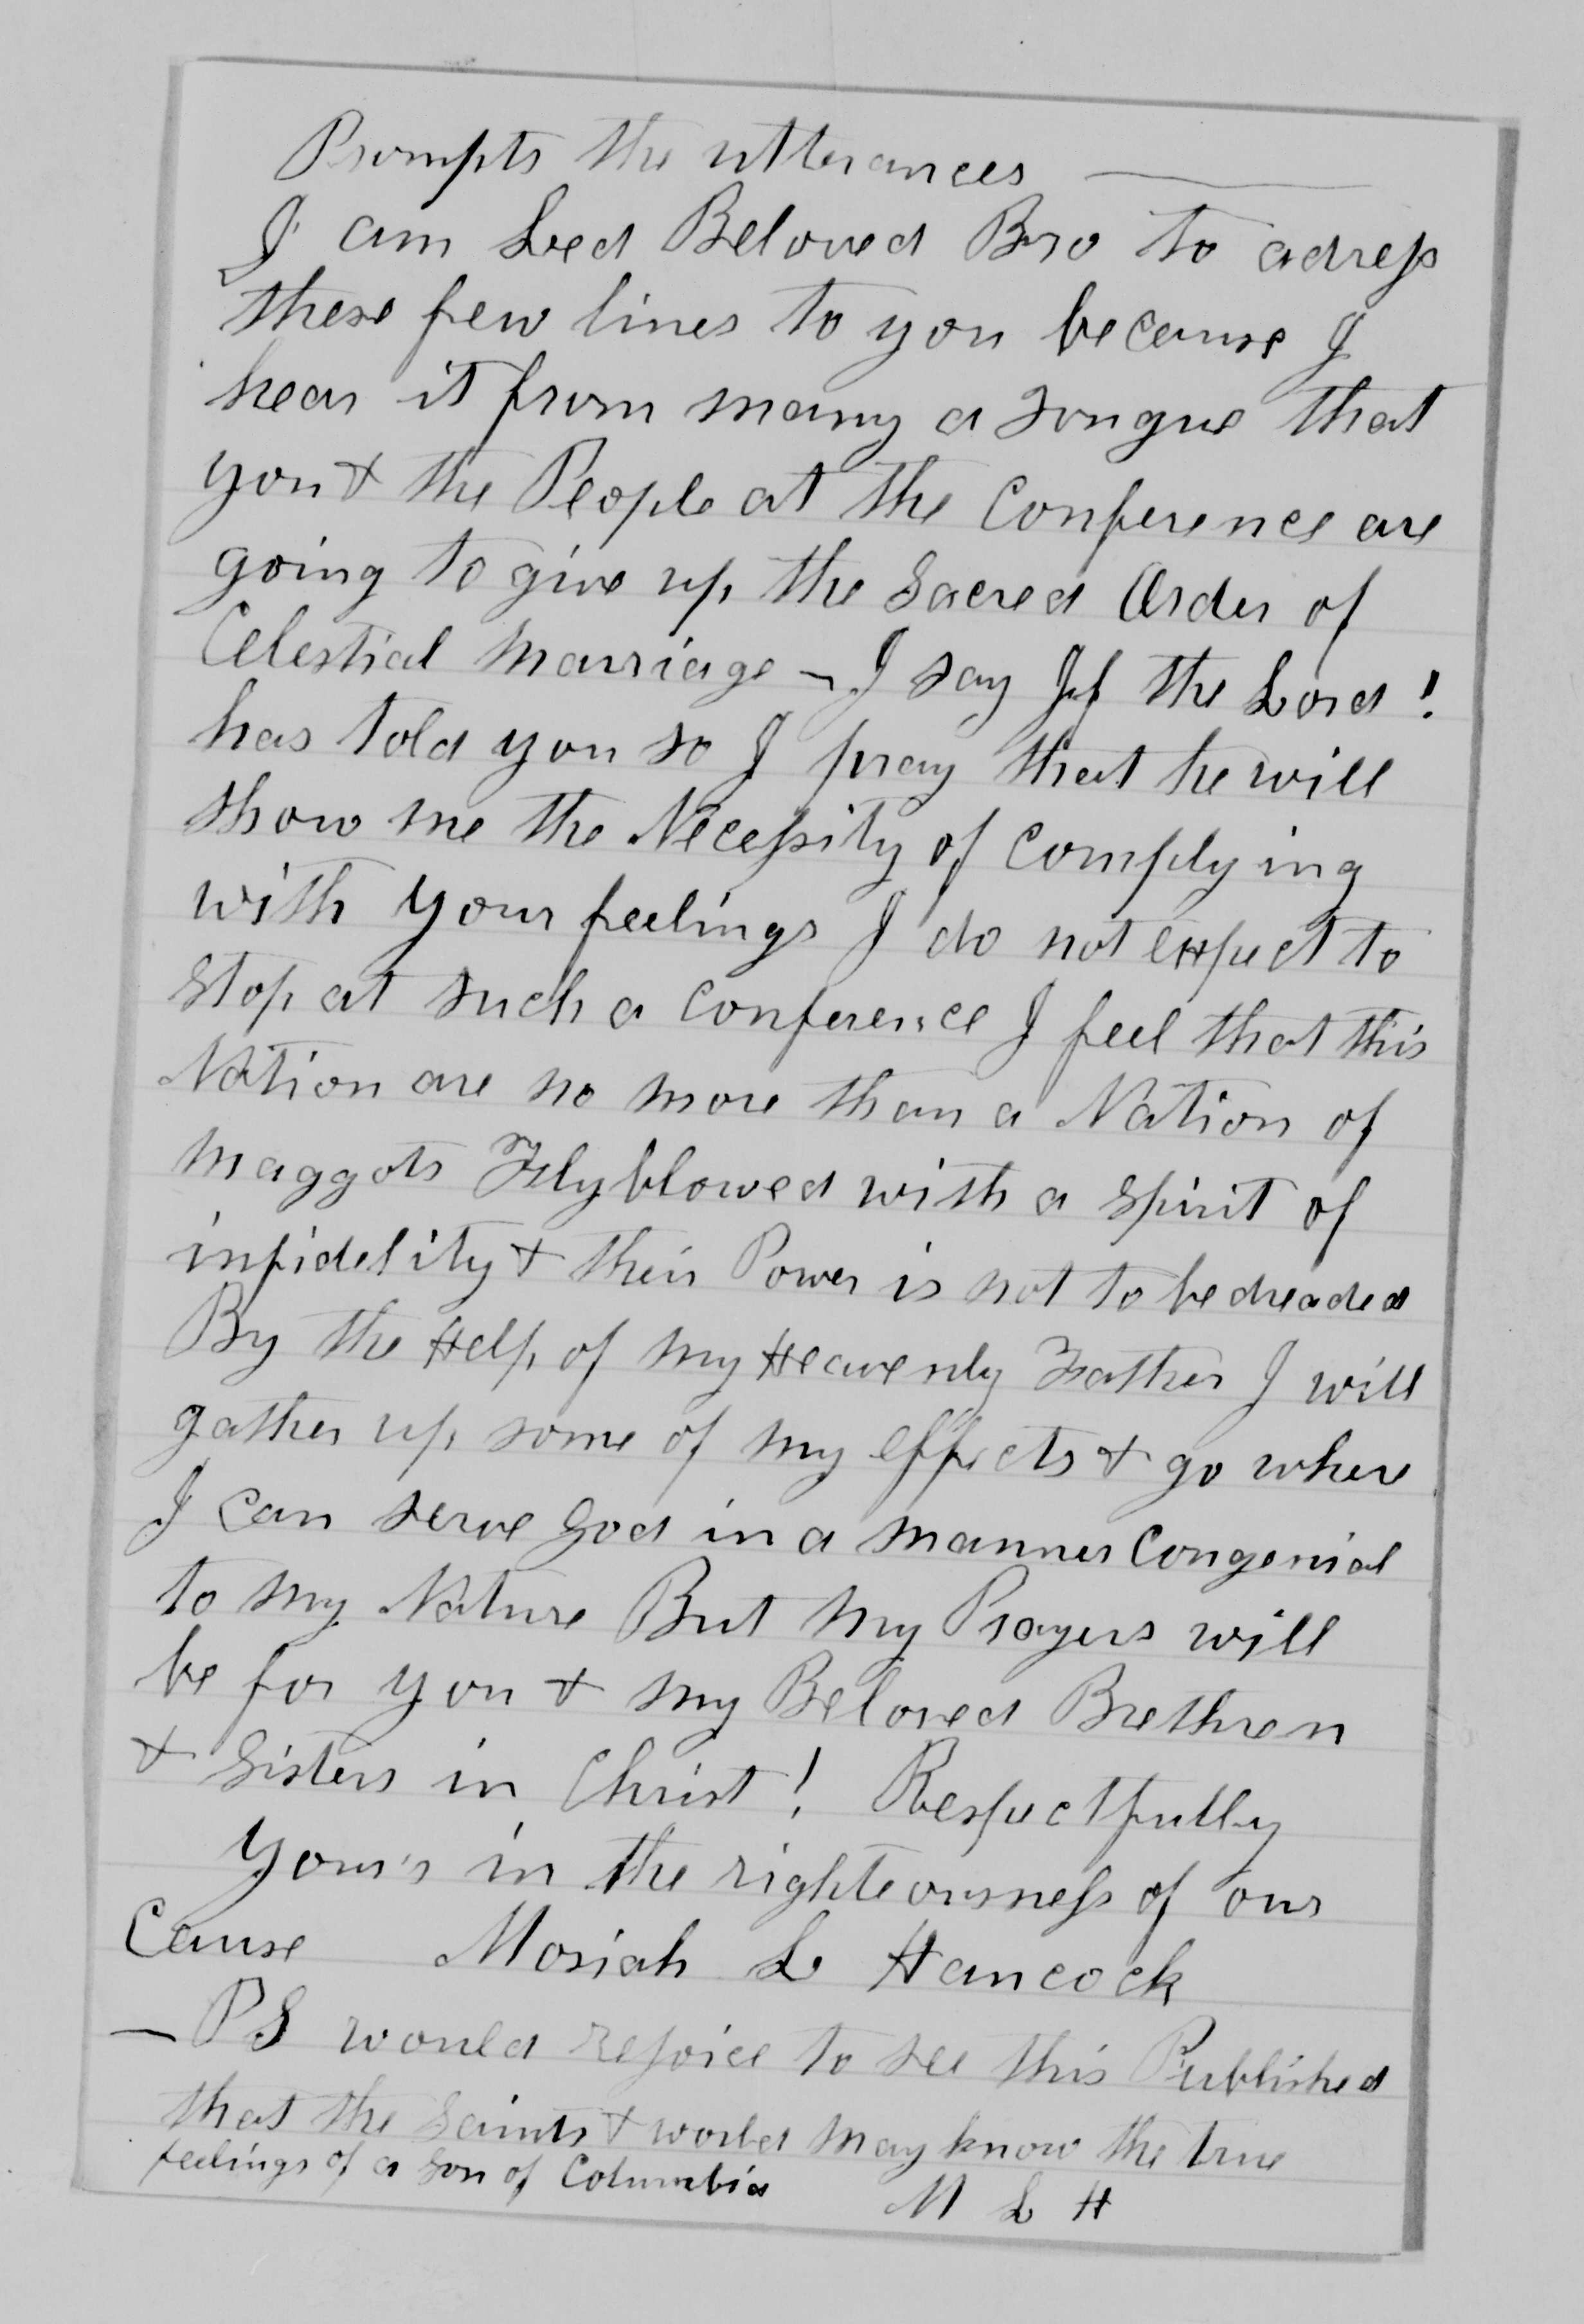 Prompts the utterances —
I am Led Beloved Bro to adress
these few lines to you because I
hear it from many a Tongue that
you & the People at the Conference are
going to give up the Sacred Order of
Celestial Marriage – I say If the Lord!
has told you so I pray that he will
show me the Necessity of Complying
with your feelings I do not Expect to
Stop at such a Conference I feel that this
Nation are no more than a Nation of
Maggots Flyblowed with a Spirit of
infidelity & their Power is not to be dreaded
By the Help of my Heavenly Father I will
gather up some of my effects & go where
I can serve God in a manner Congenial
to my Nature But my Prayers will
be for you & my Beloved Brethren
& Sisters in Christ! Respectfully
Your's in the righteousness of our
Cause Mosiah L Hancock
— PS would rejoice to see this Published
that the Saints & world may know the true
feelings of a Son of Columbia
M L H